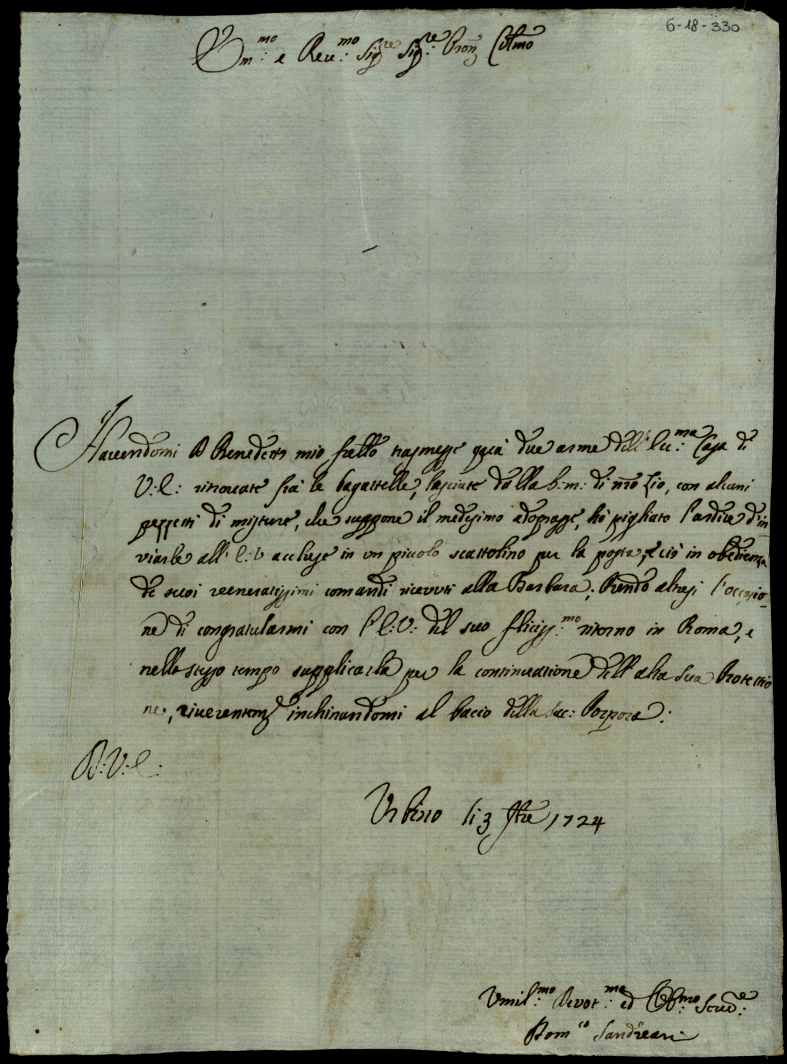 6-18-330
Em.mo e Rev.mo Sig.re Sig.re Pron Col.mo
Havendomi D Benedetto mio fratello trasmesse quà due arme dell' Ecc.ma Casa di
V: E: ritrovate frà le bagattelle, lasciate dalla b: m: di nro Zio, con alcuni
pezzetti di misture, che suppone il medesimo adoprasse, hò pigliato l'ardire d'in=
viarle all' E: V accluse in un piccolo scattolino per la posta, e ciò in obedienza
de suoi veneratissimi comandi ricevuti alla Barbara; Prendo altresi l'occasio=
ne di congratularmi con l'E: V: del suo feliciss.mo ritorno in Roma, e
nello stesso tempo supplicarla per la continuatione dell' alta sua Protettio
ne, riverentem inchinandomi al baccio della Sac: Porpora:
D: V: E:
Urbino li 3 1724
Umil.mo Devot.mo ed Obb.mo Serv.e
Dom.co